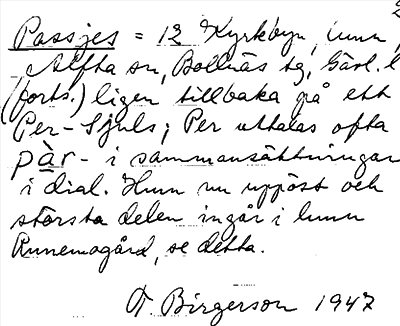 2
Passjes = 12 Kyrkbyn, hmn,
Alfta sn, Bollnäs tg, Gävl. l
(forts.) ligen tillbaka på ett
Per-Sjuls; Per uttalas ofta
pàr- i sammansättningar
i dial. Hmn nu upplöst och
största delen ingår i hmn
Runemogård, se detta.
Birgerson 1947